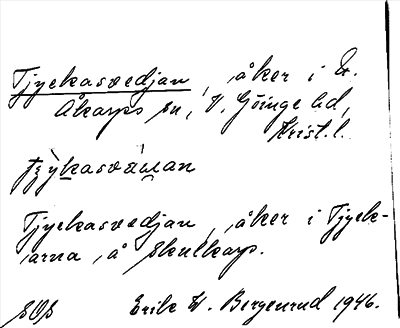 Tjyckasvedjan, åker i Ö.
Åkarps sn, V. Göinge hd,
Krist. l.
Tjyckasvedjan, åker i Tjyck-
arna, å Skulkarp.
Erik W. Bergenrud 1946.